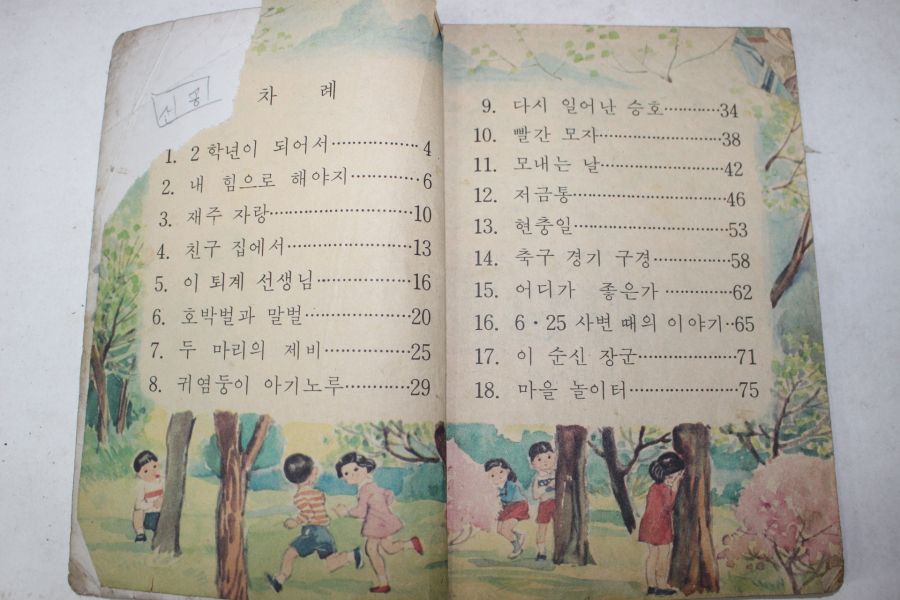 신공
차 례
1. 2 학년이 되어서 4
2. 내 힘으로 해야지 6
3. 재주 자랑 10
4. 친구 집에서 13
5. 이 퇴계 선생님 16
6. 호박벌과 말벌 20
7. 두 마리의 제비 25
8. 귀염둥이 아기노루 29
9. 다시 일어난 승호 34
10. 빨간 모자 38
11. 모내는 날 42
12. 저금통 46
13. 현충일 53
14. 축구 경기 구경 58
15. 어디가 좋은가 62
16. 6·25 사변 때의 이야기 65
17. 이 순신 장군 71
18. 마을 놀이터 75